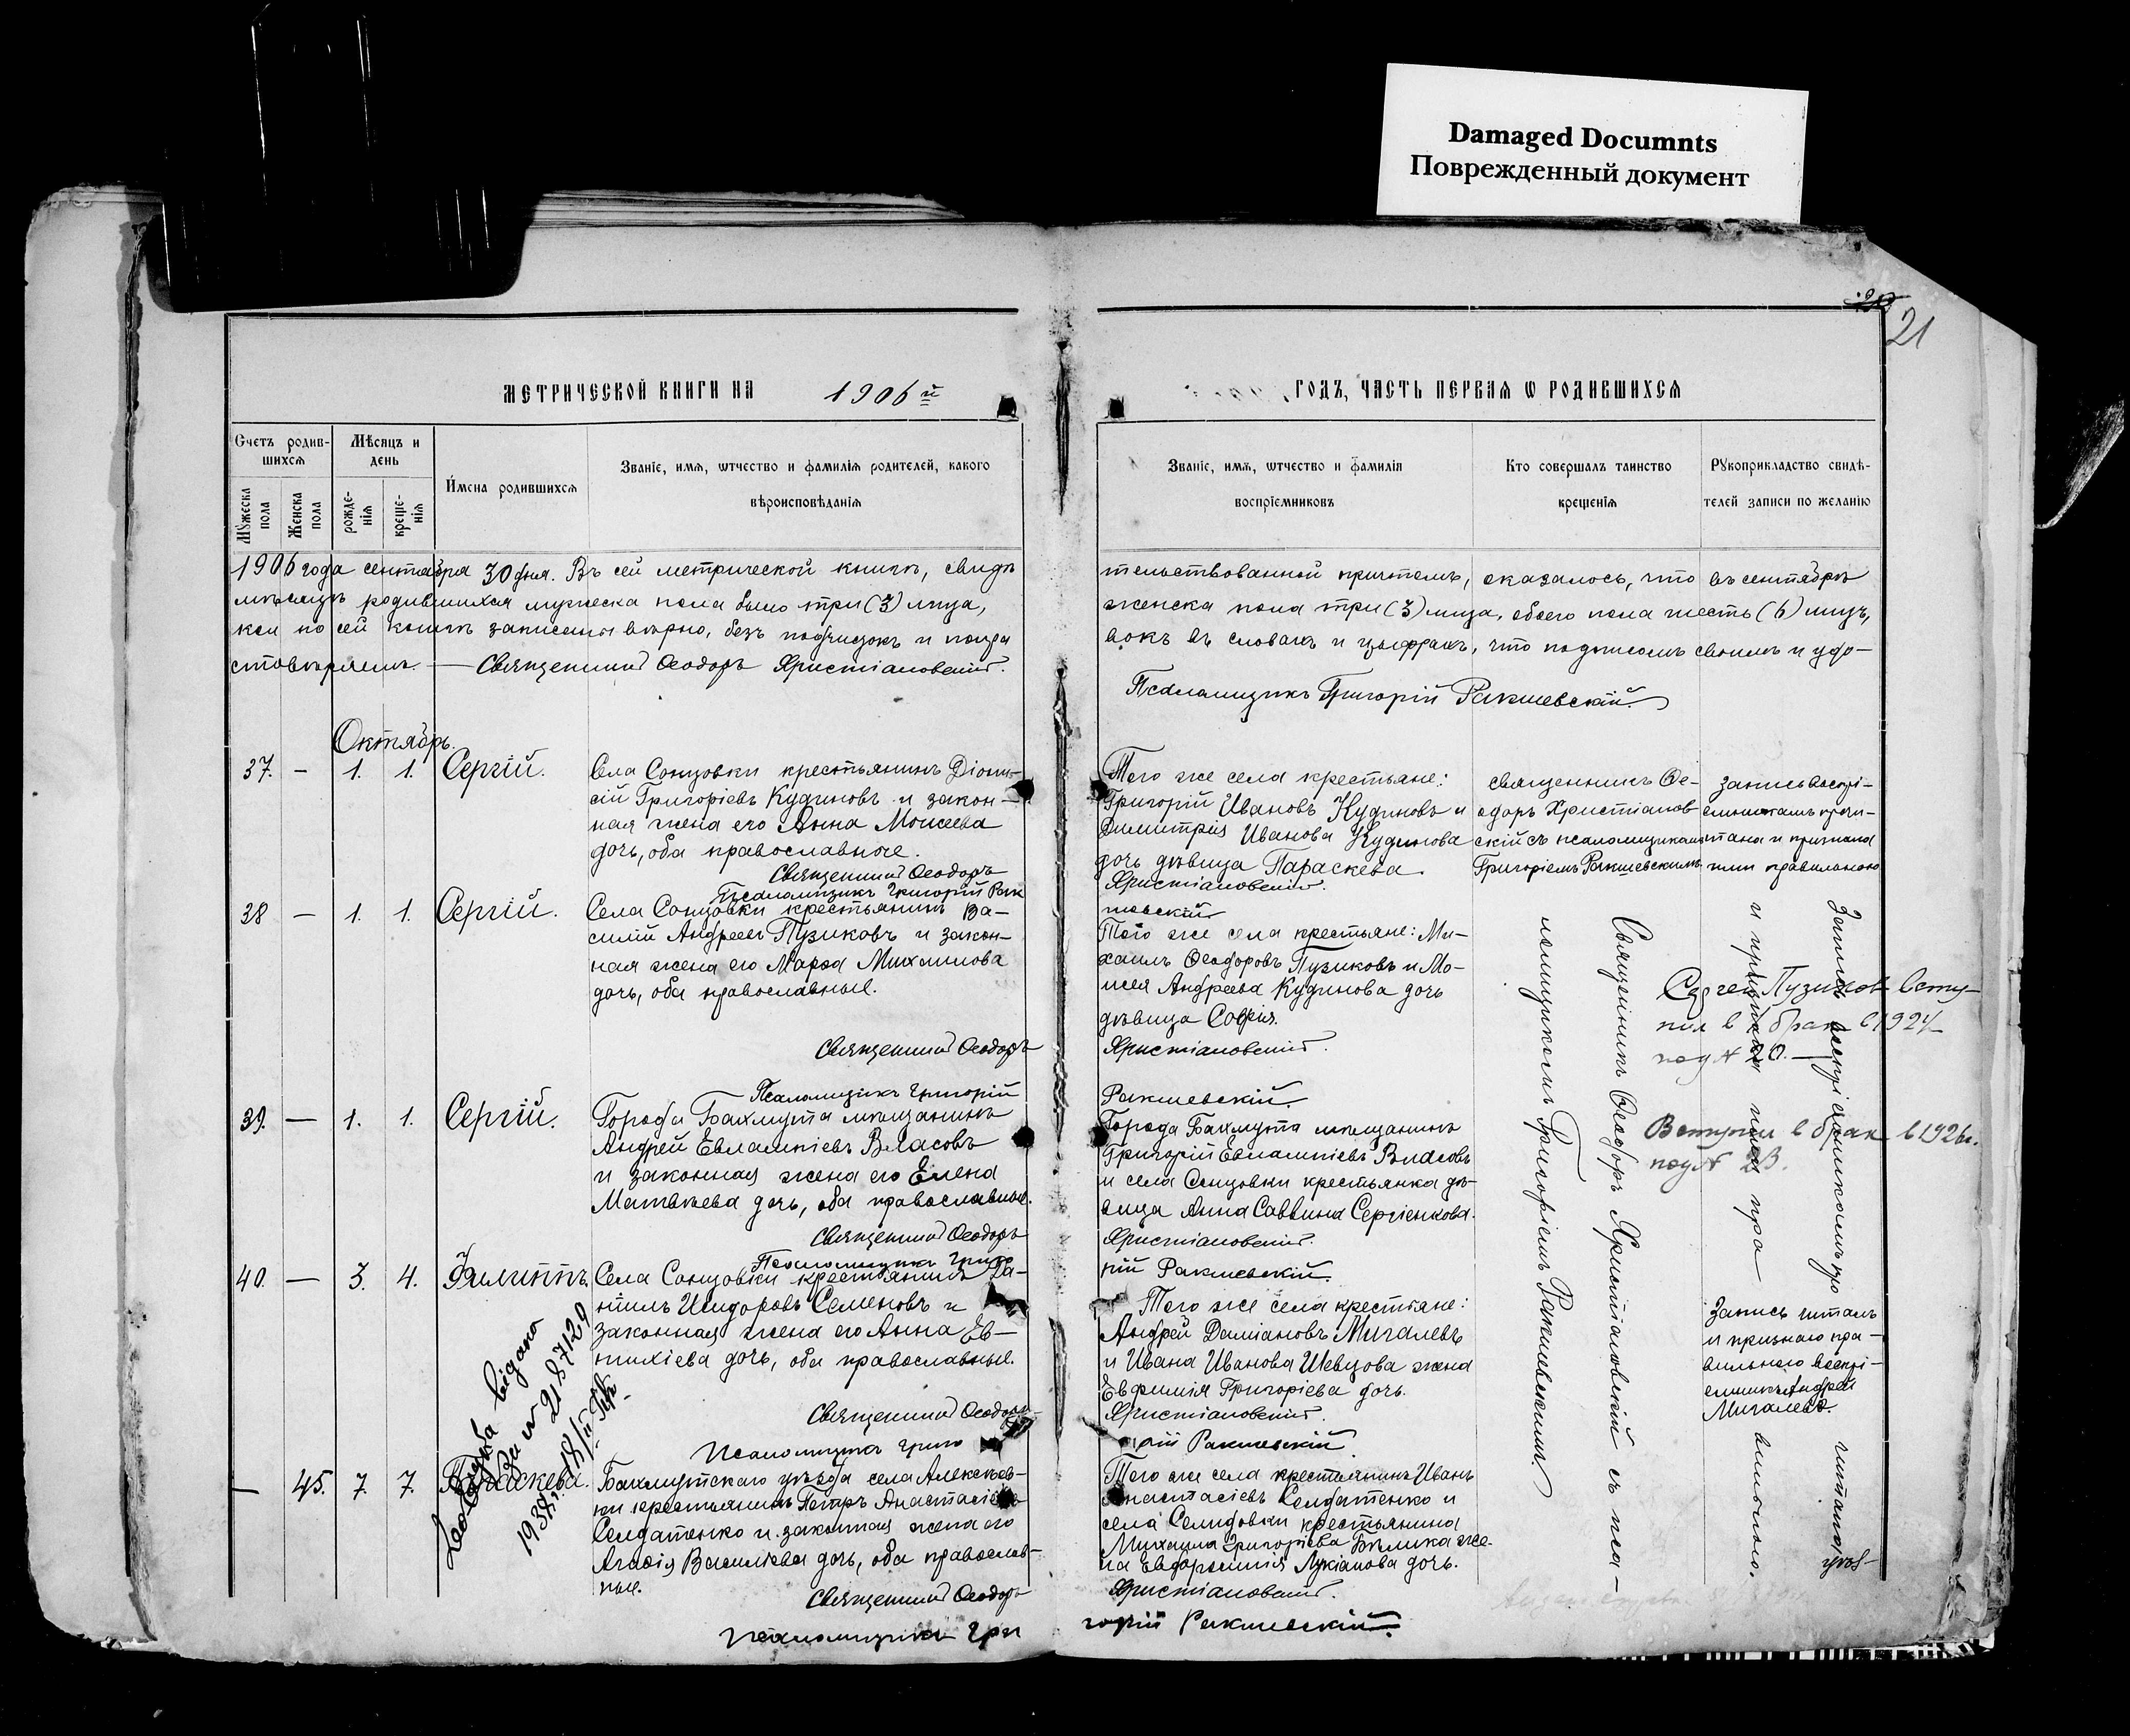 Damaged Documnts
Поврежденный документ
21
МЕТРИЧЕСКОЙ КНИГИ НА 1906 й
ГОДЪ, ЧАСТЬ ПЕРВАЯ Ѡ РОДИВШИХСЯ
Счетъ родив-
шихся
Мужеска пола
Женска пола
Мѣсяцъ и
день
рожде-
нія
креще-
нія
Имена родившихся
Званіе, имя, ѡтчество и фамилія родителей, какого
вѣроисповѣданія
Званіе, имя, ѡтчество и фамилія
воспріемниковъ
Кто совершалъ таинство
крещенія
Рукоприкладство свидѣ-
телей записи по желанію
1906 года сентября 30 дня. Въ сей метрической книгѣ, свидѣ
тельствованной причтомъ, оказалось, что въ сентябрѣ
мѣсяцѣ родившихся мужеска пола было три (3) лица,
женска пола три (3) лица, обоего пола шесть (6) лицъ,
кои по сей книгѣ записаны вѣрно, безъ подчистокъ и попра
вокъ въ словахъ и цыфрахъ, что подписомъ своимъ и удо-
стовѣряемъ. — Священникъ Ѳеодоръ Христіановскій.
Псаломщикъ Григорій Ракшевскій.
Октябрь.
37. — 1. 1. Сергій.
Села Сонцовки крестьянинъ Діони-
сій Григоріевъ Кудиновъ и закон-
ная жена его Анна Моисеева
дочь, оба православные.
Священникъ Ѳеодоръ
Псаломщикъ Григорій Рак
Того же села крестьяне:
Григорій Ивановъ Кудиновъ и
Димитрія Иванова Кудинова
дочь дѣвица Параскева.
Христіановскій.
шевскій
священникъ Ѳе-
одоръ Христіанов
скій съ псаломщикомъ
Григоріемъ Ракшевскимъ
запись воспрі-
емникамъ прочи-
тана и признана
ими правильною
38 — 1. 1. Сергій.
Села Сонцовки крестьянинъ Ва-
силій Андреевъ Пузиковъ и закон-
ная жена его Марѳа Михаилова
дочь, оба православные.
Священникъ Ѳеодоръ
Псаломщикъ Григорій
Того же села крестьяне: Ми-
хаилъ Ѳеодоровъ Пузиковъ и Мо-
исея Андреева Кудинова дочь
дѣвица Софія.
Христіановскій.
Ракшевскій.
Священникъ Ѳеодоръ Христіановскій съ пса-
ломщикомъ Григоріемъ Ракшевскимъ.
Запись воспріемникамъ про читана
и признана ими пра вильною.
Сергей Пузиков всту-
пил в брак в 1927
под № 20. —
39. — 1. 1. Сергій.
Города Бахмута мѣщанинъ
Андрей Евлампіевъ Власовъ
и законная жена его Елена
Матвѣева дочь, оба православные.
Священникъ Ѳеодоръ
Псаломщикъ Григо
Города Бахмута мѣщанинъ
Григорій Евлампіевъ Власовъ
и села Сонцовки крестьянка дѣ-
вица Анна Саввина Сергіенкова.
Христіановскій.
рій Ракшевскій.
Вступил в брак в 1926г.
под № 23.
40. — 3. 4. Филиппъ.
Села Сонцовки крестьянинъ Да-
ніилъ Исидоровъ Семеновъ и
законная жена его Анна Ев-
тихіева дочь, оба православные.
Священникъ Ѳеодоръ
Псаломщикъ Григо
Того же села крестьяне:
Андрей Даміановъ Мигалевъ
и Ивана Иванова Шевцова жена
Евфимія Григоріева дочь.
Христіановскій.
рій Ракшевскій
Запись читалъ
и признаю пра-
вильною воспрі-
емникъ Андрей
Мигалевъ.
— 45. 7. 7. Параскева.
Бахмутскаго уѣзда села Алексѣев-
ки крестьянинъ Петръ Анастасіевъ
Солдатенко и законная жена его
Агаѳія Василіева дочь, оба православ-
ные.
Священникъ Ѳеодоръ
Псаломщикъ Гри
Того же села крестьянинъ Иванъ
Анастасіевъ Солдатенко и
села Селидовки крестьянина
Михаила Григоріева Бѣлика же-
на Евфросинія Лукіанова дочь.
Христіановскій.
горій Ракшевскій.